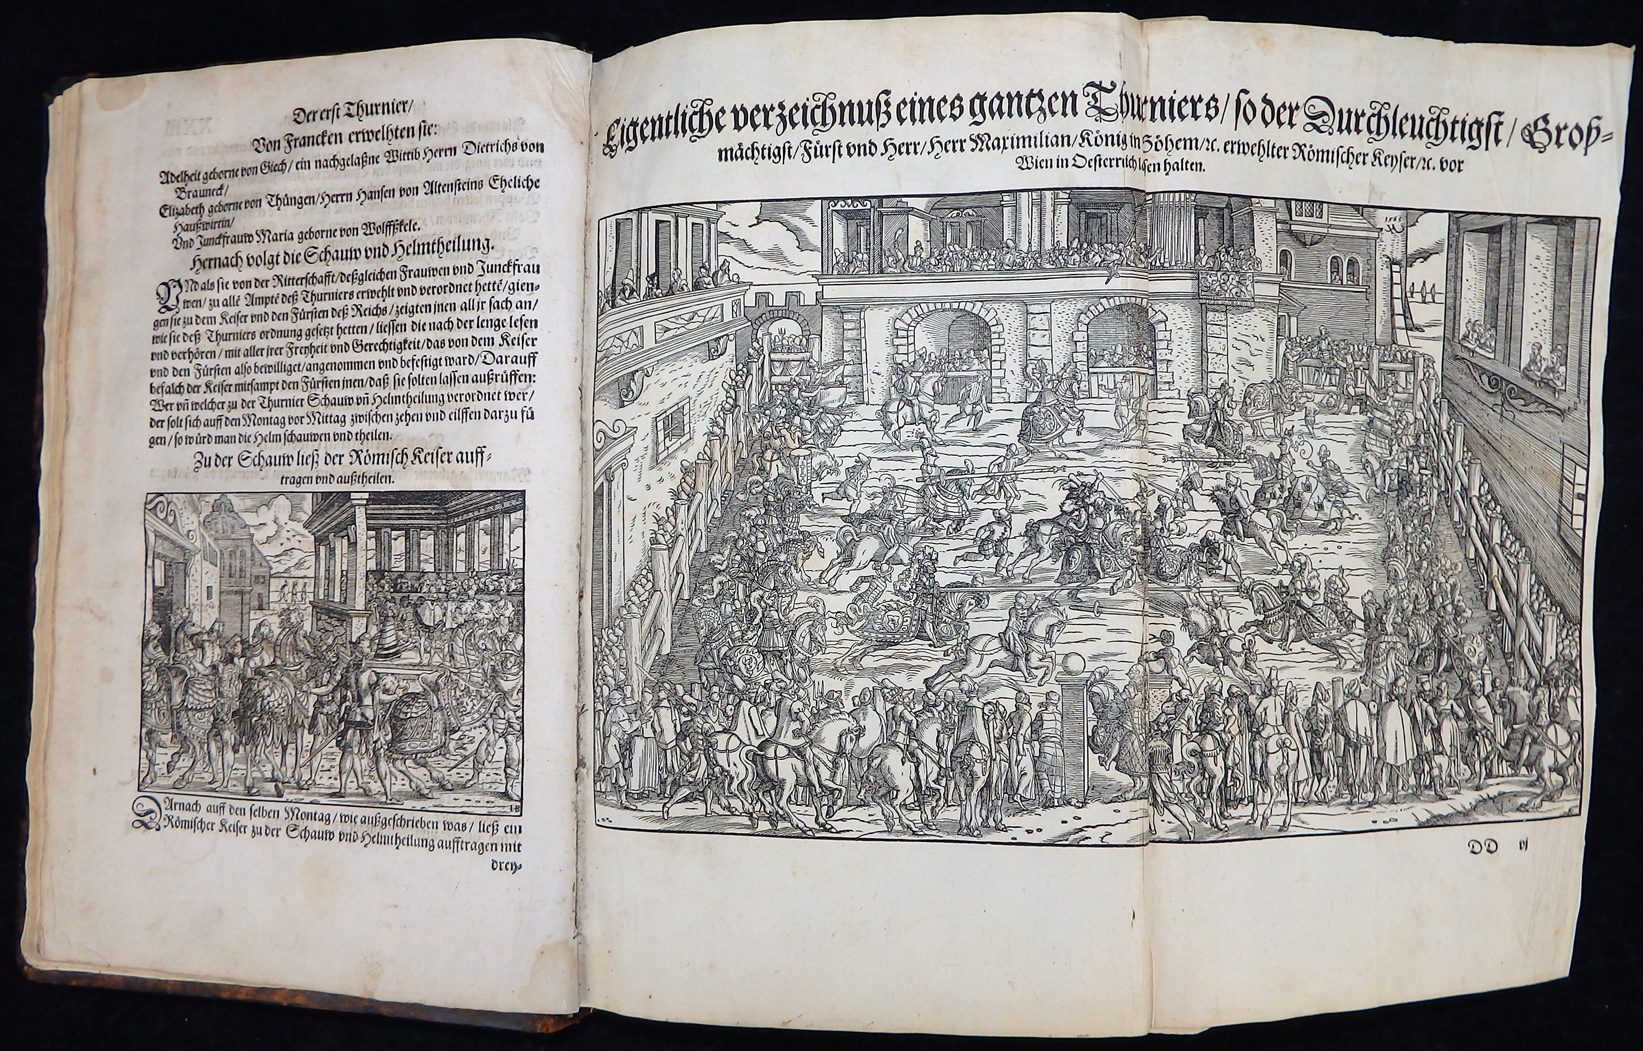 Der erst Thurnier/
Von Francken erwelhten sie:
Adelheit geborne von Giech/ ein nachgelaßne Wittib Herrn Dietrichs von
Brauneck/
Elizabeth geborne von Thüngen/ Herrn Hansen von Altensteins Eheliche
Haußwirtin/
Vnd Junckfrauw Maria geborne von Wolffßkele.
Hernach volgt die Schauw vnd Helmtheilung.
VNd als sie von der Ritterschafft/ deßgleichen Frauwen vnd Junckfrau
wen/ zu alle Ampte deß Thurniers erwehlt vnd verordnet hette/ gien-
gen sie zu dem Keiser vnd den Fürsten deß Reichs/ zeigten jnen all jr sach an/
wie sie deß Thurniers ordnung gesetzt hetten/ liessen die nach der lenge lesen
vnd verhören/ mit aller jrer Freyheit vnd Gerechtigkeit/ das von dem Keiser
vnd den Fürsten also bewilliget/ angenommen vnd befestigt ward/ Darauff
befalch der Keiser mitsampt den Fürsten jnen/ daß sie solten lassen außrüffen:
Wer vñ welcher zu der Thurnier Schauw vñ Helmtheilung verordnet wer/
der solt sich auff den Montag vor Mittag zwischen zehen vnd eilffen darzu fü
gen/ so würd man die Helm schauwen vnd theilen.
Zu der Schauw ließ der Römisch Keiser auff-
tragen vnd außtheilen.
DArnach auff den selben Montag/ wie außgeschrieben was/ ließ ein
Römischer Keiser zu der Schauw vnd Helmtheilung aufftragen mit
drey-
Eigentliche verzeichnuß eines gantzen Thurniers/ so der Durchleuchtigst/ Groß-
mächtigst/ Fürst vnd Herr/ Herr Maximilian/ König in Böhem/ ꝛc. erwehlter Römischer Keyser/ ꝛc. vor
Wien in Oesterreich halten.
DD vj